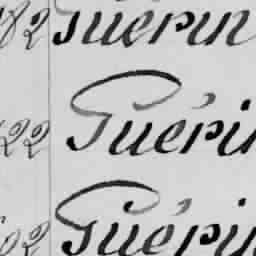 82 Guérin
22 Guérin
02 Guérin